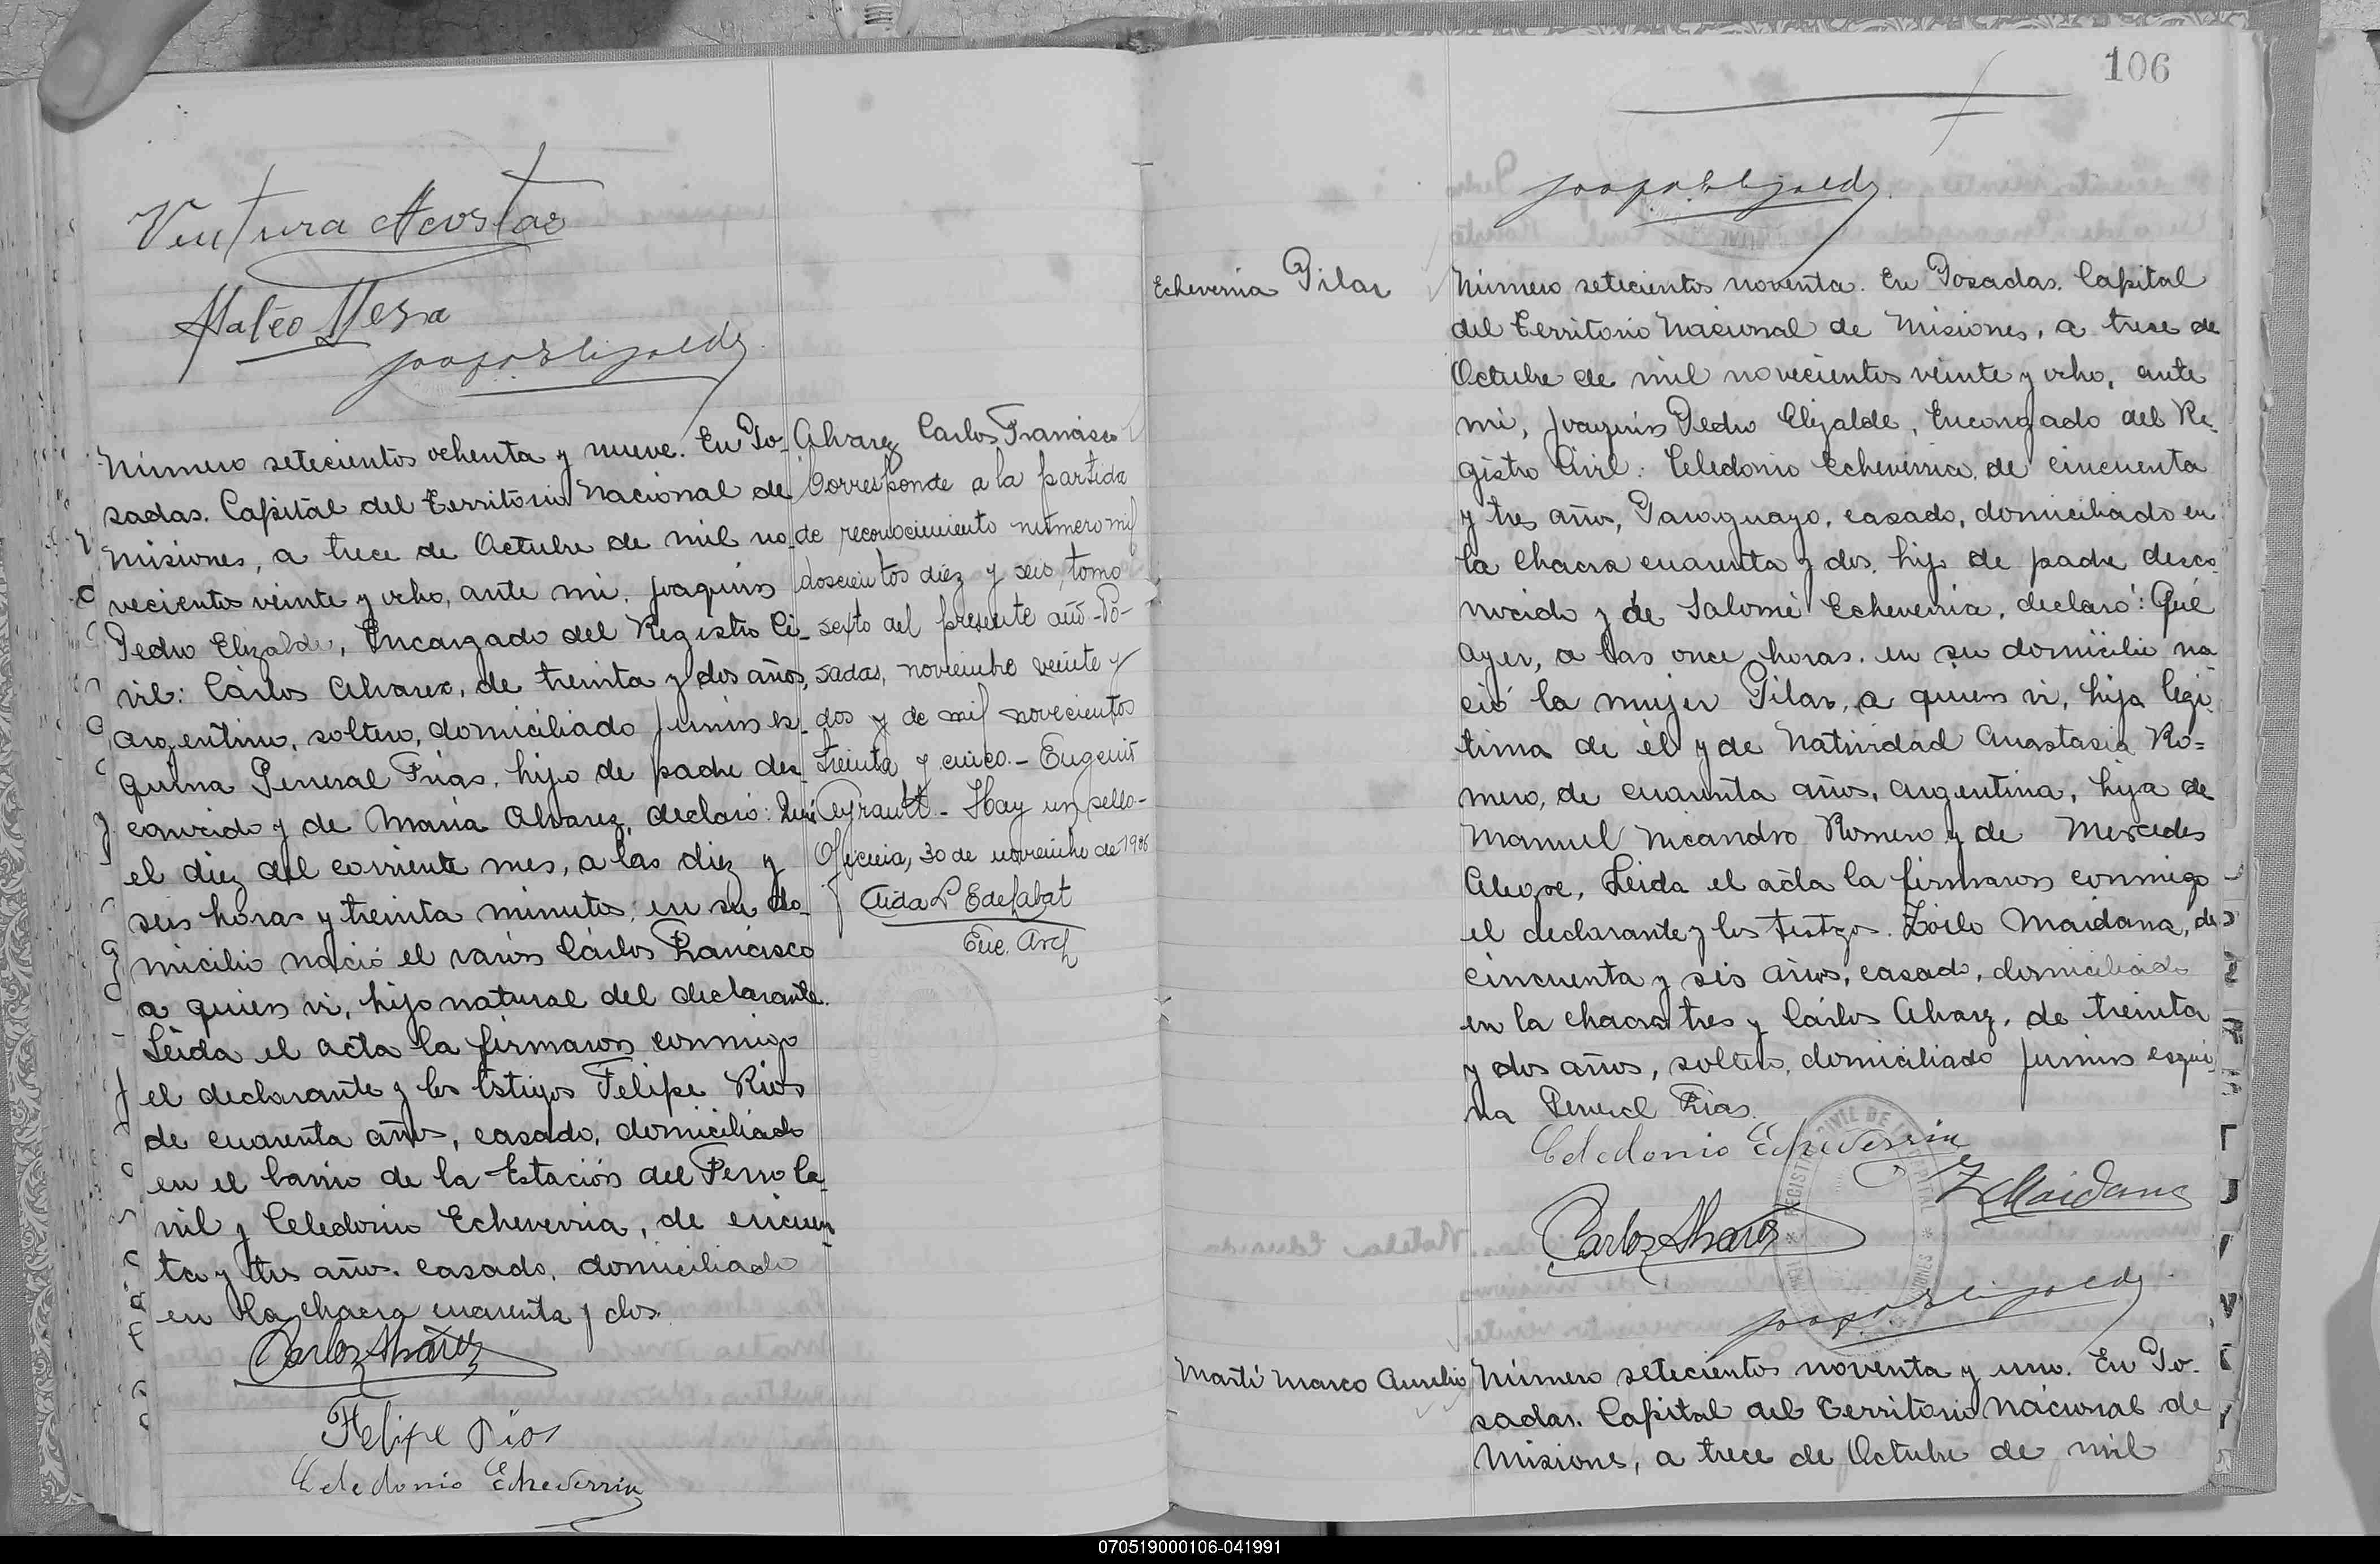 Ventura Acosta
Mateo Meza
Número setecientos ochenta y nueve. En Po-
sadas. Capital del Territorio Nacional de
Misiones, a trece de Octubre de mil no-
vecientos veinte y ocho, ante mi. Joaquin
Pedro Elizalde, Encargado del Registro Ci-
vil: Cárlos Alvarez, de treinta y dos años,
argentino, soltero, domiciliado Junin es-
quina General Frias, hijo de padre des-
conocido y de Maria Alvarez, declaró: Que
el diez del corriente mes, a las diez y
seis horas y treinta minutos, en su do-
micilio nació el varón Cárlos Francisco
a quien vi, hijo natural del declarante.
Leida el acta la firmaron conmigo
el declarante y los testigos Felipe Rios
de cuarenta años, casado, domiciliado
en el barrio de la Estación del Ferro Ca-
rril y Celedonio Echeverria, de cincuen-
ta y tres años. casado, domiciliado
en la chacra cuarenta y dos.
Carlos Alvarez
Felipe Rios
Celedonio Echeverria
Alvarez Carlos Francisco
Corresponde a la partida
de reconocimiento número mil
doscientos diez y seis, tomo
sexto del presente año - Po-
sadas, noviembre veinte y
dos y de mil novecientos
treinta y cinco. - Eugenio
Hay un sello -
Oficina, 30 de noviembre de 19
Aida
Enc. Arch
106
Echeverria Pilar
Número setecientos noventa. En Posadas. Capital
del Territorio Nacional de Misiones, a trece de
Octubre de mil novecientos veinte y ocho, ante
mi, Joaquin Pedro Elizalde, Encargado del Re-
gistro Civil: Celedonio Echeverria, de cincuenta
y tres años, Paraguayo, casado, domiciliado en
la chacra cuarenta y dos, hijo de padre desco-
nocido y de Salomé Echeverria, declaró: Qué
ayer, a las once horas. en su domicilio na-
ció la mujer Pilar, a quien vi, hija legi-
tima de él y de Natividad Anastasia Ro-
mero, de cuarenta años, argentina, hija de
Manuel Nicandro Romero y de Mercedes
Alegre, Leida el acta la firmaron conmigo
el declarante y los testigos. Zoilo Maidana, de
cincuenta y seis años, casado, domiciliado
en la chacra tres y Cárlos Alvarez, de treinta
y dos años, soltero, domiciliado Junin esqui-
na General Frias.
Celedonio Echeverria
Z Maidana
Carlos Alvarez
Marti Marco Aurelio
Número setecientos noventa y uno. En Po-
sadas. Capital del Territorio Nacional de
Misiones, a trece de Octubre de mil
070519000106-041991